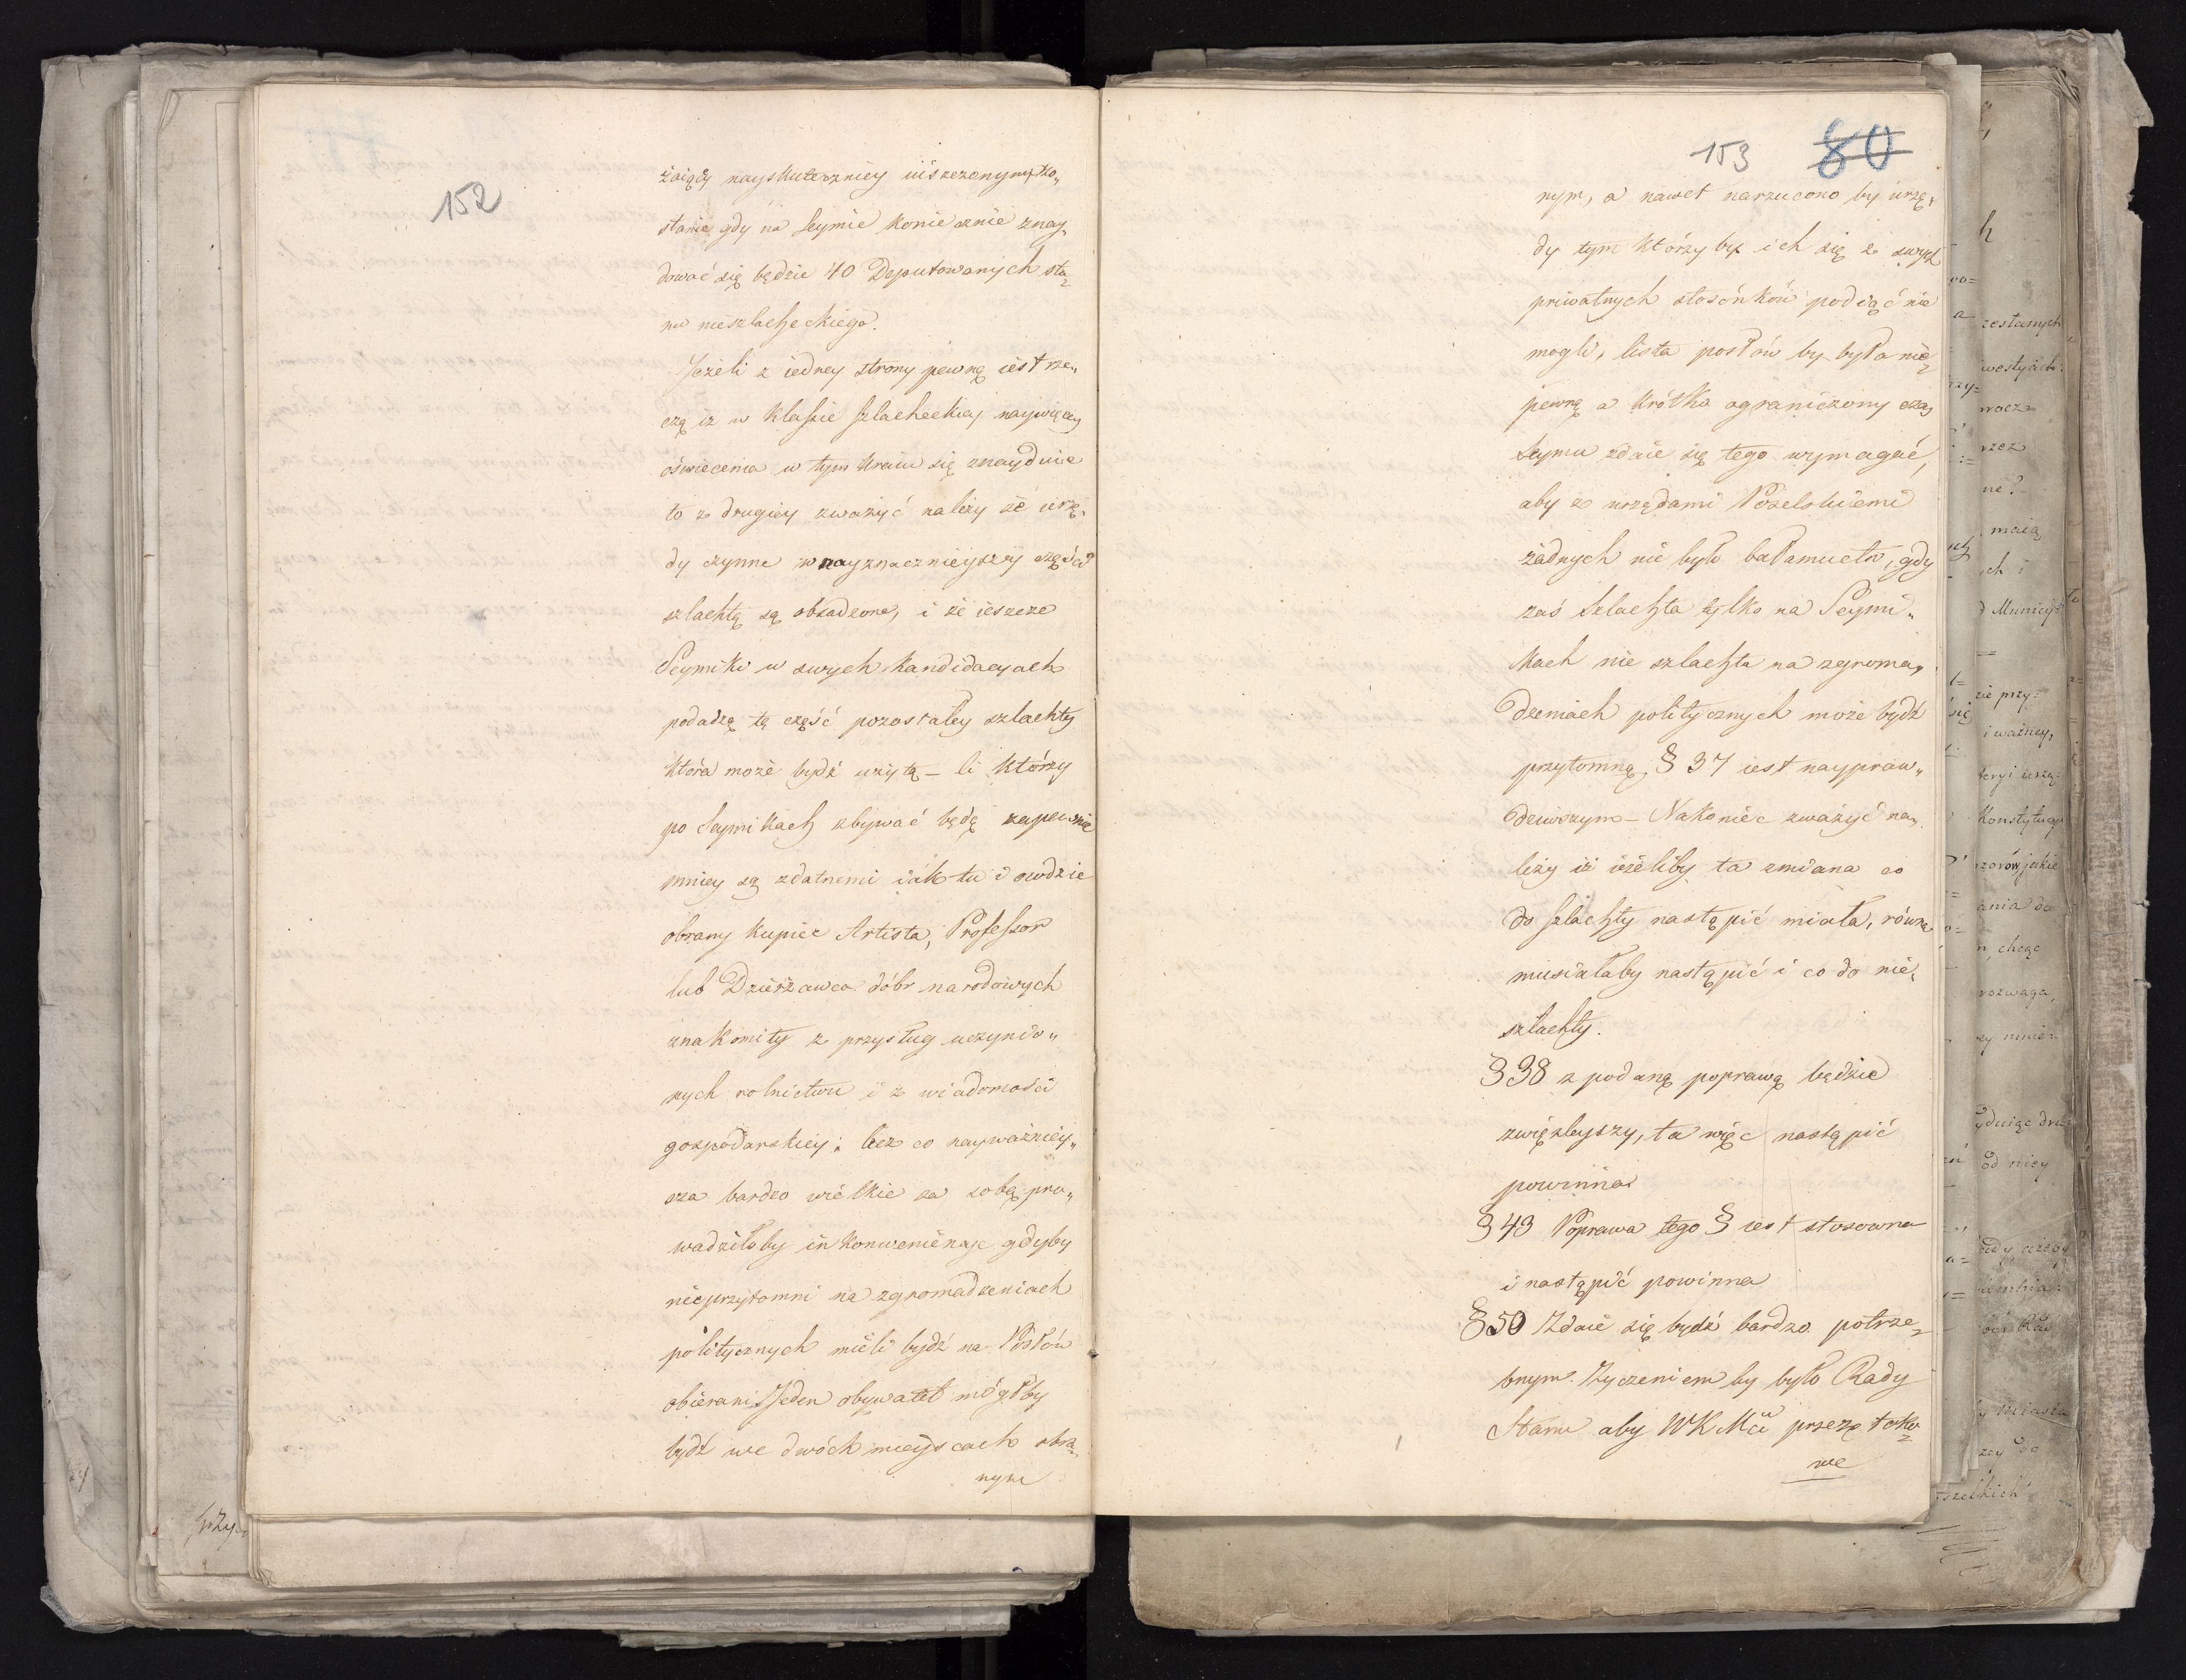 152
żaiący nayskuteczniey uiszczonym zo„
stanie gdy na Seymie koniecznie znay„
dować się będzie 40 Deputowanych sta„
nu nieszlacheckiego.
Jeżeli z iedney strony pewną iest rze„
czą iż w klassie szlacheckiey naywięcey
oświecenia w tym kraiu się znayduie
to z drugiey zważyć należy że urzę„
dy czynne w nayznacznieyszey części
szlachtą są obsadzone, i że ieszcze
Seymiki w swych kandidacyach
podadzą tę część pozostałey szlachty
która może bydź użytą – ci którzy
po Seymikach zbywać będą zapewnie
mniey są zdatnemi iak tu i owdzie
obrany kupiec Artista, Professor
lub Dzierżawca dóbr narodowych
znakomity z przysług uczynio„
nych rolnictwu i z wiadomości
gospodarskiey; lecz co nayważniey„
sza bardzo wielkie za sobą pro„
wadziłoby inkonweniencje gdyby
nieprzytomni na zgromadzeniach
politycznych mieli bydź na Posłów
obierani Jeden obywatel mógłby
bydź we dwóch mieyscach obra„
nym
153 80
nym, a nawet narzucono by urzę„
dy tym którzy by ich się z swych
priwatnych stosónków podiąć nie
mogli, lista posłów by była nie„
pewną a krótko ograniczony czas
Seymu zdaie się tego wymagać,
aby z urzędami Poselskiemi
żadnych nie było bałamuctw, gdy
zaś szlachta tylko na Seymi„
kach nie szlachta na zgroma„
dzeniach politycznych może bydź
przytomną, § 37 iest nayspraw„
dziwszym – Nakoniec zważyć na„
leży iż ieżeliby ta zmiana co
do szlachty nastąpić miała, równa
musiałaby nastąpić i co do nie„
szlachty.
§ 38 z podaną poprawą będzie
zwięźleyszy, ta więc nastąpić
powinna
§ 43 Poprawa tego § iest stosowna
i nastąpić powinna
§ 50 Zdaie się bydź bardzo potrze„
bnym. Życzeniem by było Rady
Stanu aby WKMć przez tako„
we